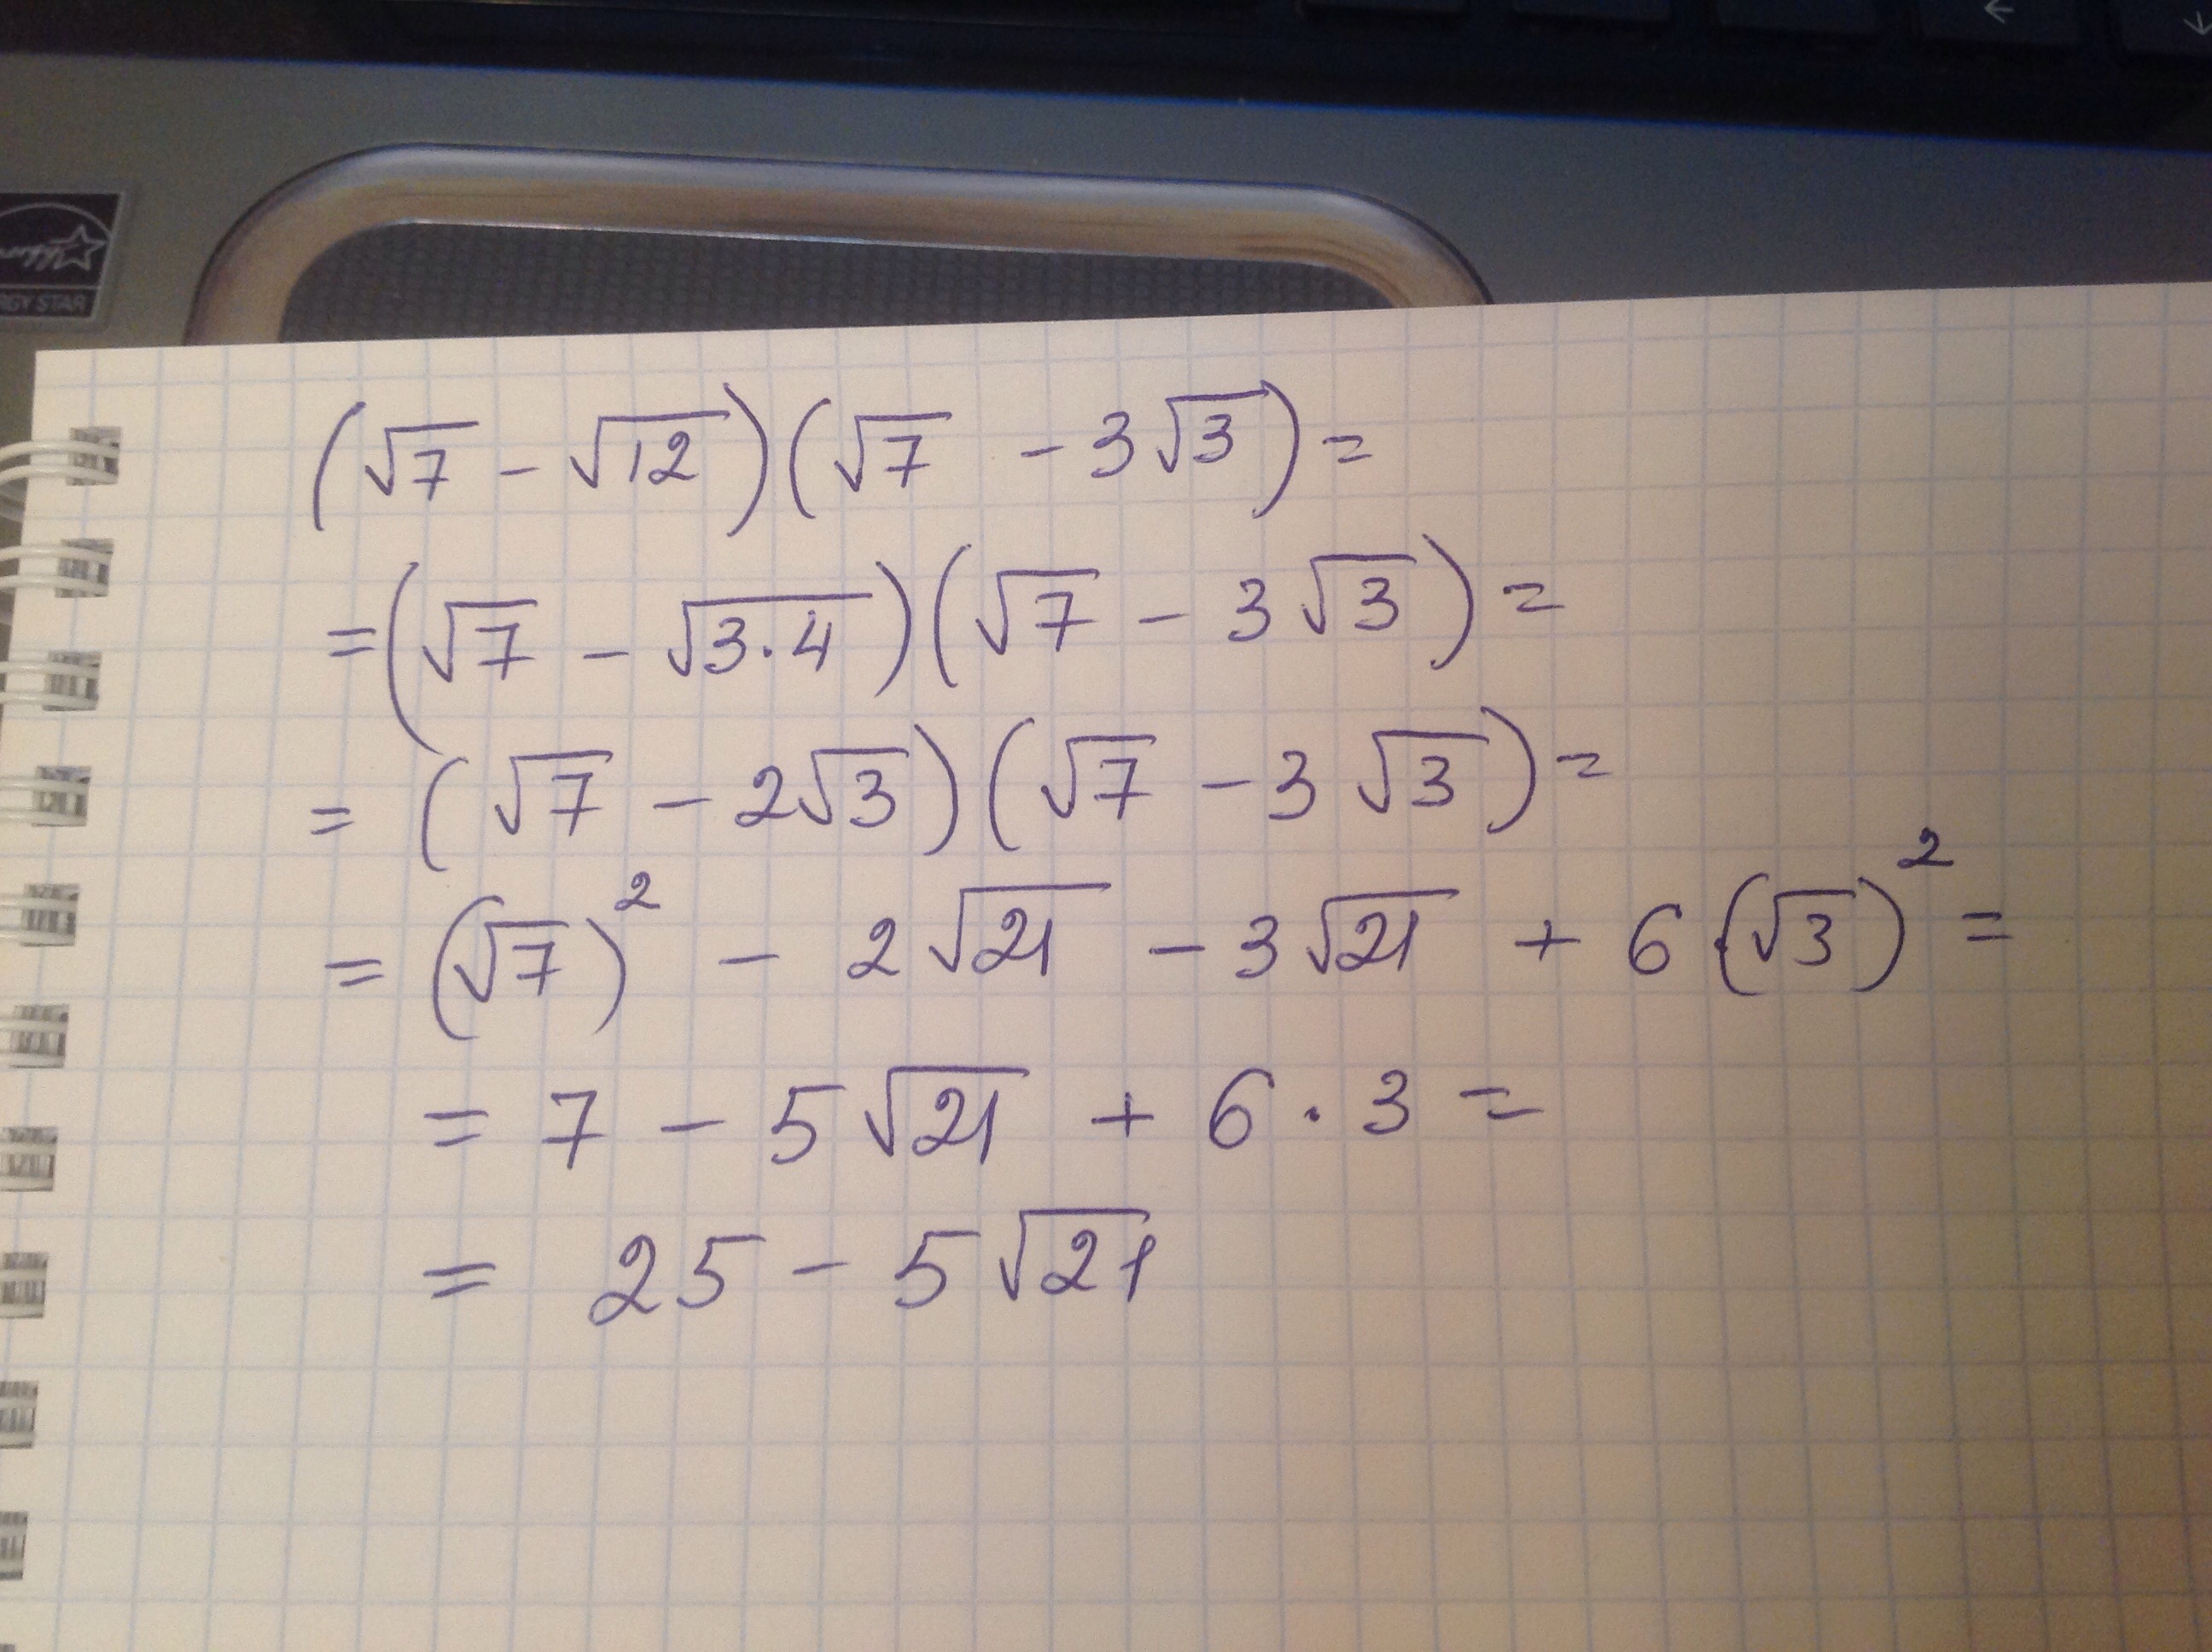 RGY STAR
(√7 - √12)(√7 - 3√3) =
= (√7 - √3·4)(√7 - 3√3) =
= (√7 - 2√3)(√7 - 3√3) =
= (√7)² - 2√21 - 3√21 + 6·(√3)² =
= 7 - 5√21 + 6·3 =
= 25 - 5√21